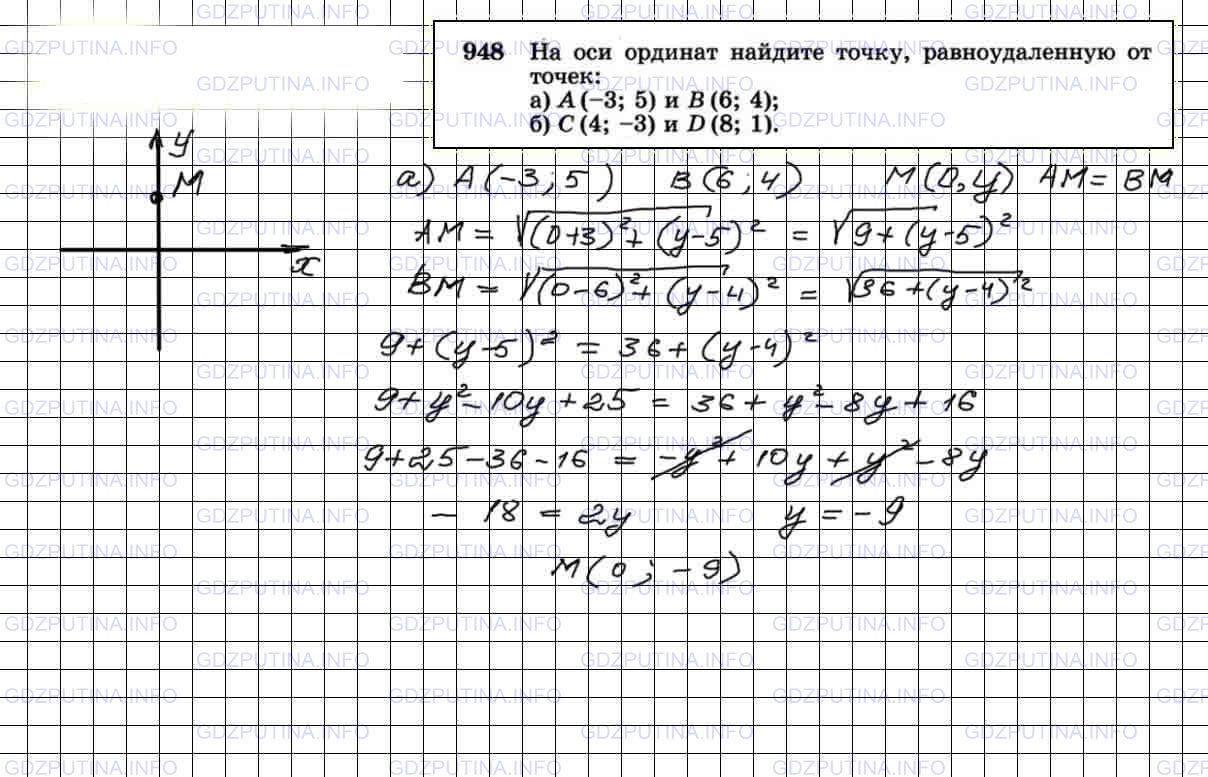 948 На оси ординат найдите точку, равноудаленную от
точек:
а) A (−3; 5) и B (6; 4);
б) C (4; −3) и D (8; 1).
y
M
x
а) A (-3; 5) B (6; 4) M (0, y) AM = BM
AM = √(0+3)² + (y-5)² = √9 + (y-5)²
BM = √(0-6)² + (y-4)² = √36 + (y-4)²
9 + (y-5)² = 36 + (y-4)²
9 + y² - 10y + 25 = 36 + y² - 8y + 16
9 + 25 - 36 - 16 = -y² + 10y + y² - 8y
- 18 = 2y y = - 9
M (0; - 9)
GDZPUTINA.INFO